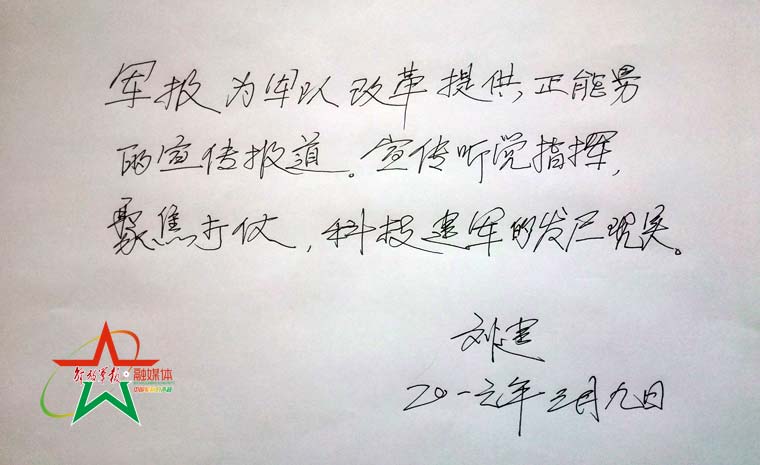 军报为军队改革提供，正能量
的宣传报道。宣传听党指挥，
聚焦打仗，科技建军的发展现实。
刘建
2016年3月九日
解放军报 融媒体